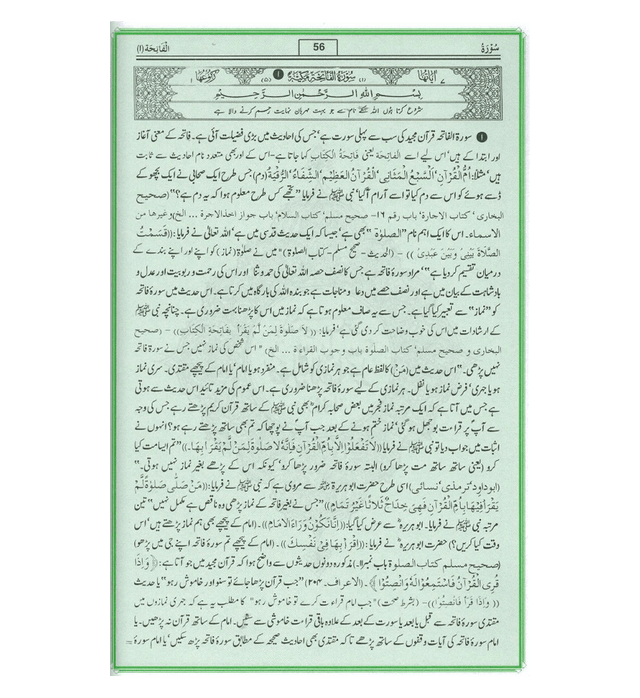 سُوۡرَةُ 56 اَلۡفَاتِحَة (۱)
۷ اٰیَاتُهَا سُوۡرَةُ الْفَاتِحَةِ مَكِّيَّةٌ ۱ رُكُوۡعُهَا
بِسْمِ اللّٰهِ الرَّحْمٰنِ الرَّحِیْمِ
شروع کرتا ہوں اللہ کے نام سے جو بہت مہربان نہایت رحم کرنے والا ہے
۱ سورۃ الفاتحہ قرآن مجید کی سب سے پہلی سورت ہے' جس کی احادیث میں بڑی فضیلت آئی ہے۔ فاتحہ کے معنی آغاز
اور ابتدا کے ہیں' اس لیے اسے الفاتحۃ یعنی فاتحۃ الکتاب کہا جاتا ہے۔ اس کے اور بھی متعدد نام احادیث سے ثابت
ہیں' مثلاً: اُمُّ الْقُرْآنِ' السَّبْعُ الْمَثَانِی' الْقُرْآنُ الْعَظِیْمُ' الشِّفَاءُ' الرُّقْیَةُ (دم) جس طرح ایک صحابی نے ایک بچھو کے
ڈسے ہوئے کو اس سے دم کیا تو اسے آرام آگیا' نبی ﷺ نے فرمایا "تجھے کس طرح معلوم ہوا کہ یہ دم ہے؟" (صحیح
البخاری' کتاب الاجارۃ' باب رقم ۱۶- صحیح مسلم' کتاب السلام' باب جواز اخذ الاجرۃ ... الخ) وغیرھا من
الاسماء۔ اس کا ایک اہم نام "الصلوٰۃ" بھی ہے' جیسا کہ ایک حدیث قدسی میں ہے' اللہ تعالیٰ نے فرمایا: ((قَسَمْتُ
الصَّلَاةَ بَیْنِی وَبَیْنَ عَبْدِی)) - (الحدیث - صحیح مسلم - کتاب الصلوۃ) "میں نے صلوٰۃ (نماز) کو اپنے اور اپنے بندے کے
درمیان تقسیم کر دیا ہے"' مراد سورۂ فاتحہ ہے جس کا نصف حصہ اللہ تعالیٰ کی حمد و ثنا اور اس کی رحمت و ربوبیت اور عدل و
بادشاہت کے بیان میں ہے اور نصف حصے میں دعا و مناجات ہے جو بندہ اللہ کی بارگاہ میں کرتا ہے۔ اس حدیث میں سورۂ فاتحہ
کو "نماز" سے تعبیر کیا گیا ہے۔ جس سے یہ صاف معلوم ہوتا ہے کہ نماز میں اس کا پڑھنا بہت ضروری ہے۔ چنانچہ نبی ﷺ
کے ارشادات میں اس کی خوب وضاحت کر دی گئی ہے' فرمایا: ((لَا صَلٰوةَ لِمَنْ لَّمْ یَقْرَأْ بِفَاتِحَةِ الْكِتَابِ)) - (صحیح
البخاری و صحیح مسلم' کتاب الصلوۃ باب وجوب القراءۃ ... الخ) "اس شخص کی نماز نہیں جس نے سورۂ فاتحہ
نہیں پڑھی۔" اس حدیث میں (مَنْ) کا لفظ عام ہے جو ہر نمازی کو شامل ہے۔ منفرد ہو یا امام' یا امام کے پیچھے مقتدی۔ سری نماز
ہو یا جہری' فرض نماز ہو یا نفل۔ ہر نمازی کے لیے سورۂ فاتحہ پڑھنا ضروری ہے۔ اس عموم کی مزید تائید اس حدیث سے ہوتی
ہے جس میں آتا ہے کہ ایک مرتبہ نماز فجر میں بعض صحابہ کرام بھی نبی ﷺ کے ساتھ قرآن کریم پڑھتے رہے جس کی وجہ
سے آپ پر قراءت بوجھل ہو گئی' نماز ختم ہونے کے بعد جب آپ نے پوچھا کہ تم بھی ساتھ پڑھتے رہے ہو؟ انہوں نے
اثبات میں جواب دیا تو نبی ﷺ نے فرمایا ((لَا تَفْعَلُوْا اِلَّا بِاُمِّ الْقُرْآنِ فَاِنَّهٗ لَا صَلٰوةَ لِمَنْ لَّمْ یَقْرَأْ بِهَا۔)) "تم ایسا مت کیا
کرو (یعنی ساتھ ساتھ مت پڑھا کرو) البتہ سورۂ فاتحہ ضرور پڑھا کرو' کیونکہ اس کے پڑھے بغیر نماز نہیں ہوتی۔"
(ابوداود' ترمذی' نسائی) اسی طرح حضرت ابو ہریرۃ سے مروی ہے کہ نبی ﷺ نے فرمایا: ((مَنْ صَلّٰی صَلٰوةً لَّمْ
یَقْرَأْ فِیْهَا بِاُمِّ الْقُرْآنِ فَهِیَ خِدَاجٌ ثَلَاثًا غَیْرُ تَمَامٍ)) "جس نے بغیر فاتحہ کے نماز پڑھی تو وہ ناقص ہے مکمل نہیں" تین
مرتبہ نبی ﷺ نے فرمایا۔ ابو ہریرہ سے عرض کیا گیا: ((اِنَّا نَكُوْنُ وَرَاءَ الْاِمَامِ)) - (امام کے پیچھے بھی ہم نماز پڑھتے ہیں' اس
وقت کیا کریں؟) حضرت ابو ہریرہ نے فرمایا: ((اِقْرَأْ بِهَا فِیْ نَفْسِكَ)) - (امام کے پیچھے تم سورۂ فاتحہ اپنے جی میں پڑھو)
(صحیح مسلم کتاب الصلوۃ باب نمبر۱۱) مذکورہ دونوں حدیثوں سے واضح ہوا کہ قرآن مجید میں جو آتا ہے: ﴿وَاِذَا
قُرِئَ الْقُرْاٰنُ فَاسْتَمِعُوْا لَهٗ وَاَنْصِتُوْا﴾ - (الاعراف۔ ۲۰۴) "جب قرآن پڑھا جائے تو سنو اور خاموش رہو" یا حدیث
((وَاِذَا قَرَأَ فَاَنْصِتُوْا)) - (بشرط صحت) "جب امام قراءت کرے تو خاموش رہو" کا مطلب یہ ہے کہ جہری نمازوں میں
مقتدی سورۂ فاتحہ سے قبل یا بعد یا سورت کے بعد کے علاوہ باقی قراءت خاموشی سے سنیں۔ امام کے ساتھ قرآن نہ پڑھیں۔ یا
امام سورۂ فاتحہ کی آیات وقفوں کے ساتھ پڑھے تاکہ مقتدی بھی احادیث صحیحہ کے مطابق سورۂ فاتحہ پڑھ سکیں' یا امام سورۂ